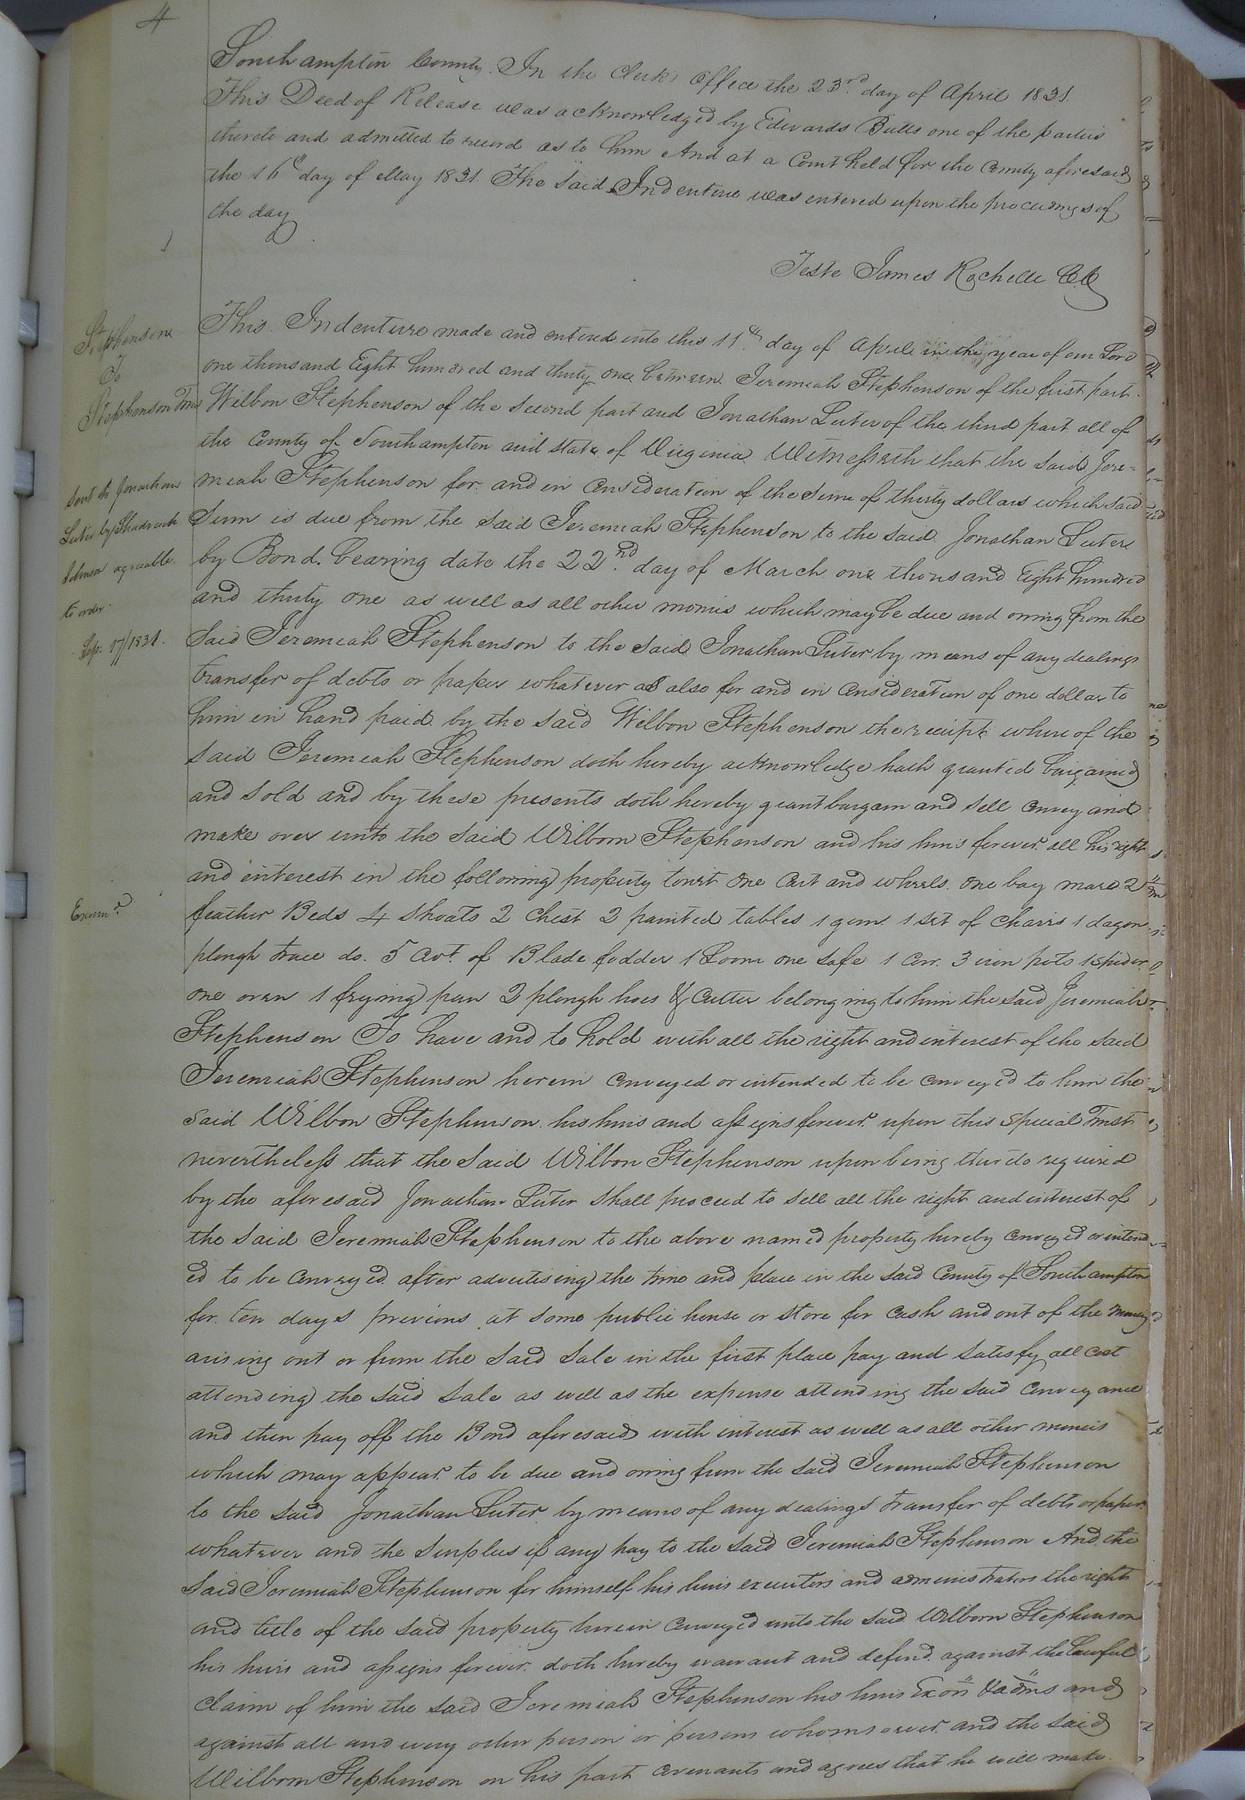 4
Southampton County. In the Clerks Office the 23rd day of April 1831
This Deed of Release was acknowledged by Edwards Butts one of the parties
thereto and admitted to record as to him And at a Court held for the County aforesaid
the 16th day of May 1831. The Said Indenture was entered upon the proceedings of
the day
Teste James Rochelle CC
Stephenson
To
Stephenson
Sent to Jonathan
Luter by Shadrach
Johnson agreeable
to order
Sep. 1831.
Exam.d
This Indenture made and entered into this 11th day of April in the year of our Lord
one thousand Eight hundred and thirty one between Jeremiah Stephenson of the first part
Wilbon Stephenson of the second part and Jonathan Luter of the third part all of
the County of Southampton and state of Virginia Witnesseth that the Said Jere=
miah Stephenson for and in Consideration of the Sum of thirty dollars which said
Sum is due from the said Jeremiah Stephenson to the said Jonathan Luter
by Bond bearing date the 22nd day of March one thousand Eight hundred
and thirty one as well as all other monies which may be due and owing from the
Said Jeremiah Stephenson to the said Jonathan Luter by means of any dealings
transfer of debts or paper whatever as also for and in Consideration of one dollar to
him in hand paid by the said Wilbon Stephenson the receipt where of the
said Jeremiah Stephenson doth hereby acknowledge hath granted bargained
and sold and by these presents doth hereby grant bargain and sell Convey and
make over unto the said Wilborn Stephenson and his heirs forever all his right
and interest in the following property towit One Cart and wheels. one bay mare 2
feather Beds 4 Shoats 2 Chest 2 painted tables 1 gun 1 set of Chairs 1 dagon
plough trace do. 5 Cwt. of Blade fodder 1 Loom one safe 1 3 iron pots 1 spider
one oven 1 frying pan 2 plough hoes & Cutter belonging to him the said Jeremiah
Stephenson To have and to hold with all the right and interest of the said
Jeremiah Stephenson herein Conveyed or intended to be Conveyed to him the
said Wilbon Stephenson his heirs and assigns forever upon this Special Trust
nevertheless that the Said Wilbon Stephenson upon being thereto required
by the aforesaid Jonathan Luter shall proceed to sell all the right and interest of
the said Jeremiah Stephenson to the above named property hereby Conveyed or intend
ed to be Conveyed after advertising the time and place in the said County of Southampton
for ten days previous at some public house or store for Cash and out of the money
arising out or from the said sale in the first place pay and satisfy all cost
attending the said Sale as well as the expense attending the said Conveyance
and then pay off the Bond aforesaid with interest as well as all other monies
which may appear to be due and owing from the said Jeremiah Stephenson
to the said Jonathan Luter by means of any dealings transfer of debts or paper
whatever and the Surplus if any pay to the said Jeremiah Stephenson And the
said Jeremiah Stephenson for himself his heirs executors and administrators the right
and title of the said property herein Conveyed unto the said Wilborn Stephenson
his heirs and assigns forever doth hereby warrant and defend against the Lawful
Claim of him the said Jeremiah Stephenson his heirs Exors & adms and
against all and every other person or persons whomsoever and the said
Wilborn Stephenson on his part Covenants and agrees that he will make